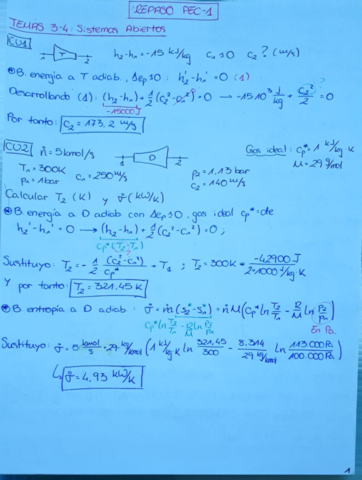 REPASO PEC-1
TEMAS 3-4: Sistemas Abiertos
CU1
T
h₂-h₁=-15 kJ/kg c₁≅0 C₂? (m/s)
B. energía a T adiab., Δep≅0: h₂'-h₁'=0 (1)
Desarrollando (1): (h₂-h₁)+½(c₂²-c₁²)=0 → -15·10³ J/kg + C₂²/2 = 0
-15000J
Por tanto: C₂=173,2 m/s
CU2
ṅ=5kmol/s
D
Gas ideal: Cp*=1 kJ/kg K
T₁=300K
c₁=250m/s
P₂=1,13bar
M=29g/mol
P₁=1bar
C₂=140m/s
Calcular T₂ (K) y σ̇ (kW/K)
B. energía a D adiab con Δep≅0, gas ideal cp*=cte
h₂'-h₁'=0 → (h₂-h₁)+½(c₂²-c₁²)=0;
Cp*(T₂-T₁)
Sustituyo: T₂=-½ (C₂²-C₁²)/Cp* + T₁ ; T₂=300K+ -42900J/2·1000J/kg K
Y por tanto: T₂=321,45 K
B. entropía a D adiab: σ̇=ṁ(s₂-s₁)=ṅ M(Cp*ln T₂/T₁ - R/M ln P₂/P₁)
Cp*ln T₂/T₁ - R/M ln P₂/P₁
En Pa.
Sustituyo: σ̇=5 kmol/s · 29 kg/kmol (1 kJ/kg K ln 321,45/300 - 8,314/29 kg/kmol ln 113000Pa/100.000Pa)
σ̇=4,93 kW/K
1